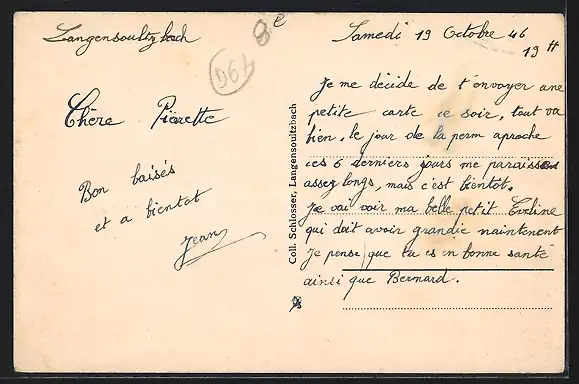 Langensoultzbach
8e
D67
Chère Pierette
Bon baisés
et a bientot
Jean
Coll. Schlosser, Langensoultzbach
Samedi 19 Octobre 46
19 H
Je me décide de t'envoyer une
petite carte ce soir, tout va
bien, le jour de la perm aproche
ces 6 derniers jours me paraissent
assez longs, mais c'est bientot.
Je vai voir ma belle petit Eveline
qui doit avoir grandie maintenent
Je pense que tu es en bonne santé
ainsi que Bernard.